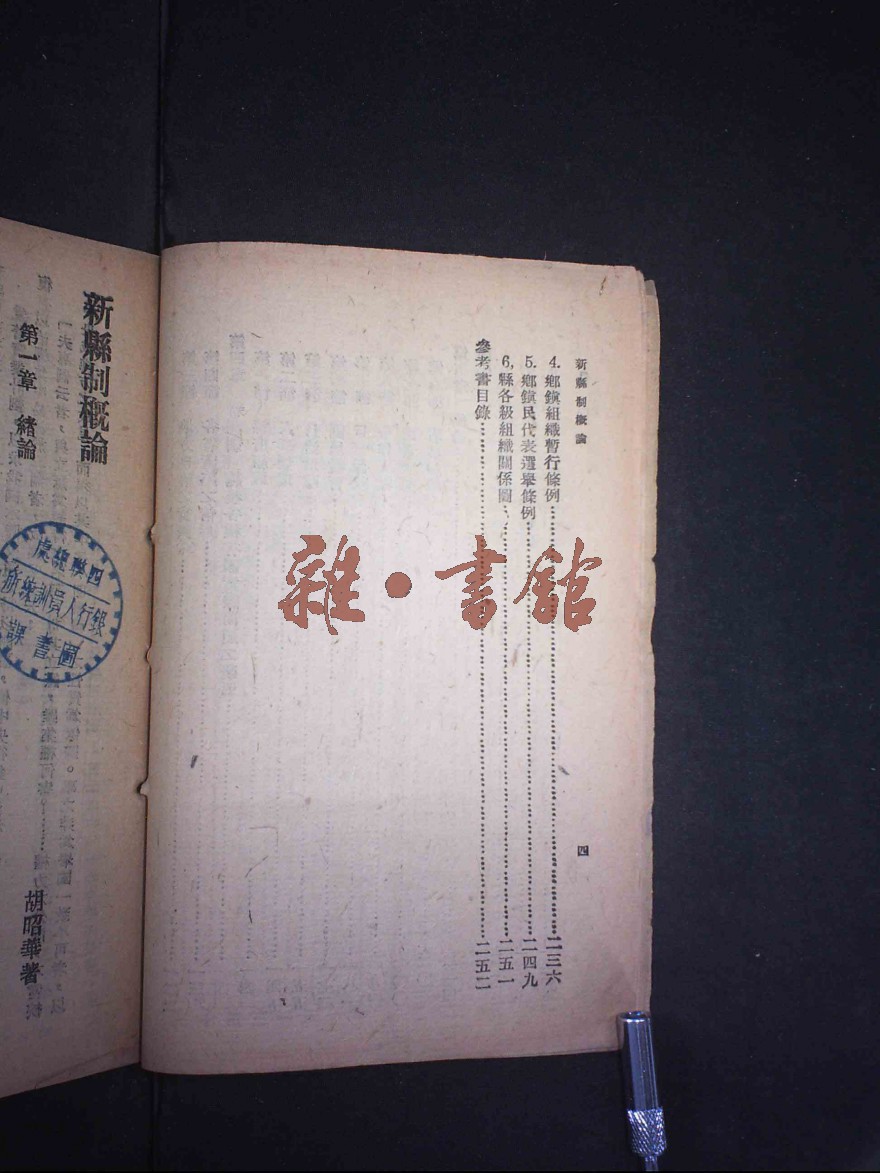 新縣制槪論
四
4. 鄕鎭組織暫行條例……二三六
5. 鄕鎭民代表選舉條例……二四九
6. 縣各級組織關係圖……二五一
參考書目錄……二五二
雜·書館
新縣制槪論
第一章 緒論
胡昭華著
四聯總處
銀行人員訓練所
圖書課